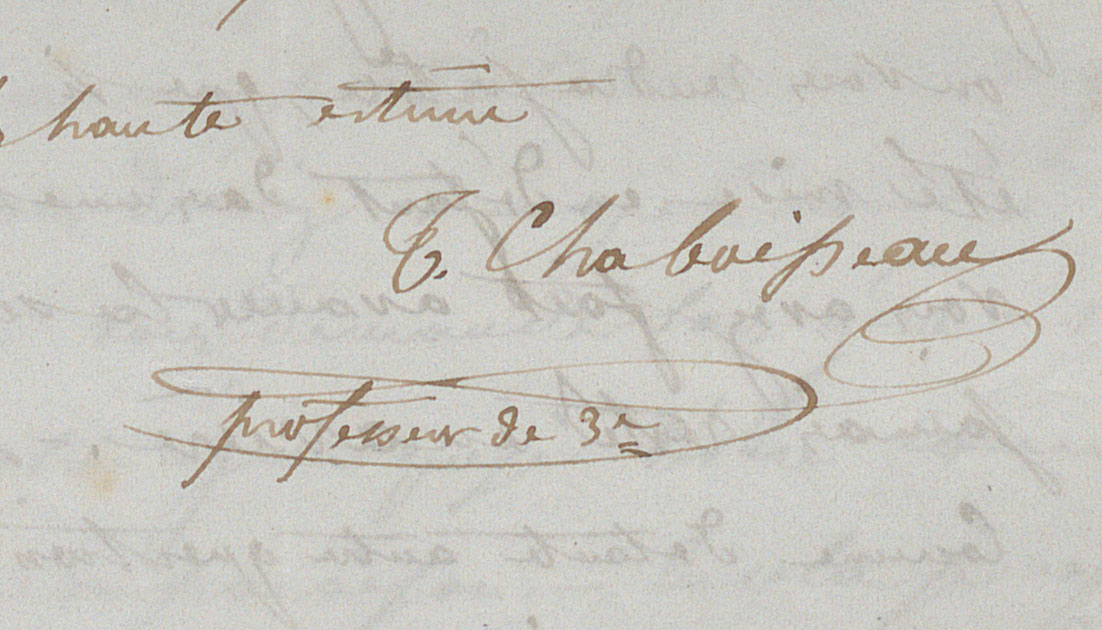 haute estime
T. Chaboisseau
professeur de 3e